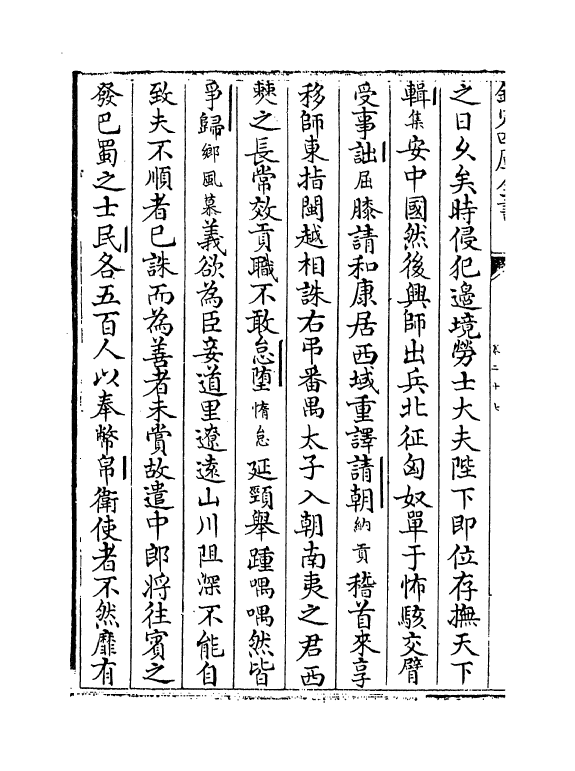 欽定四庫全書
卷二十七
之日久矣時侵犯邉境勞士大夫陛下即位存撫天下
輯集安中國然後興師出兵北征匈奴單于怖駭交臂
受事詘屈膝請和康居西域重譯請朝納貢稽首來享
移師東指閩越相誅右弔番禺太子入朝南夷之君西
僰之長常效貢職不敢怠墮惰怠延頸舉踵喁喁然皆
爭歸鄉風慕義欲為臣妾道里遼遠山川阻深不能自
致夫不順者已誅而為善者未賞故遣中郎將往賓之
發巴蜀之士民各五百人以奉幣帛衛使者不然靡有